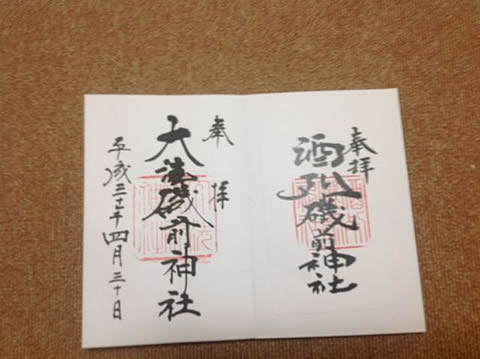 奉拝
酒列磯前神社
奉拝
大洗磯前神社
平成 年四月三十日